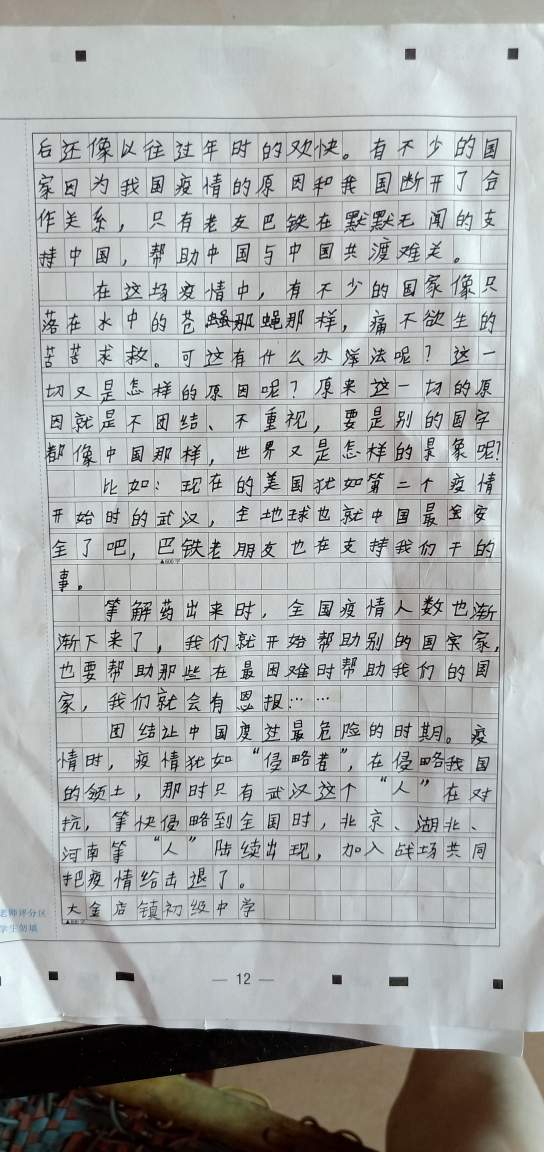 后还像以往过年时的欢快。有不少的国
家因为我国疫情的原因和我国断开了合
作关系，只有老友巴铁在默默无闻的支
持中国，帮助中国与中国共渡难关。
在这场疫情中，有不少的国家像只
落在水中的苍蝇那样，痛不欲生的
苦苦求救。可这有什么办法呢？这一
切又是怎样的原因呢？原来这一切的原
因就是不团结、不重视，要是别的国字
都像中国那样，世界又是怎样的景象呢？
比如：现在的美国犹如第二个疫情
开始时的武汉，全地球也就中国最安
全了吧，巴铁老朋友也在支持我们干的
▲600字
事。
等解药出来时，全国疫情人数也渐
渐下来了，我们就开始帮助别的国家，
也要帮助那些在最困难时帮助我们的国
家，我们就会有恩报……
团结让中国度过最危险的时期。疫
情时，疫情犹如“侵略者”，在侵略我国
的领土，那时只有武汉这个“人”在对
抗，等快侵略到全国时，北京、湖北、
河南等“人”陆续出现，加入战场共同
把疫情给击退了。
大金店镇初级中学
老师评分区
学生勿填
— 12 —